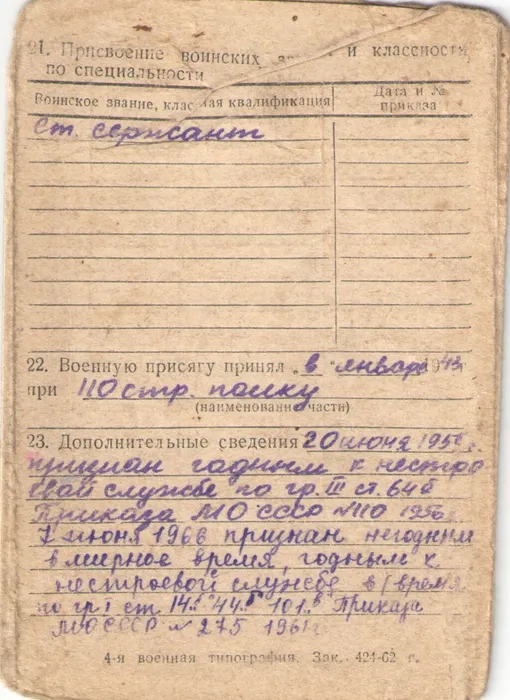 21. Присвоение воинских и классности
по специальности
Воинское звание, классная квалификация
Дата и №
приказа
Ст. сержант
22. Военную присягу принял „в“ январе 1943
при 110 стр. полку
(наименование части)
23. Дополнительные сведения 20 июня 195
признан годным к нестро
евой службе по гр. III ст. 64б
Приказа МО СССР №110 1956г
7 июня 1966 признан негодным
в мирное время, годным к
нестроевой службе в/время
по гр I ст 14б 44б 101в Приказа
МО СССР № 275 1961г
4-я военная типография. Зак. 424-62 г.